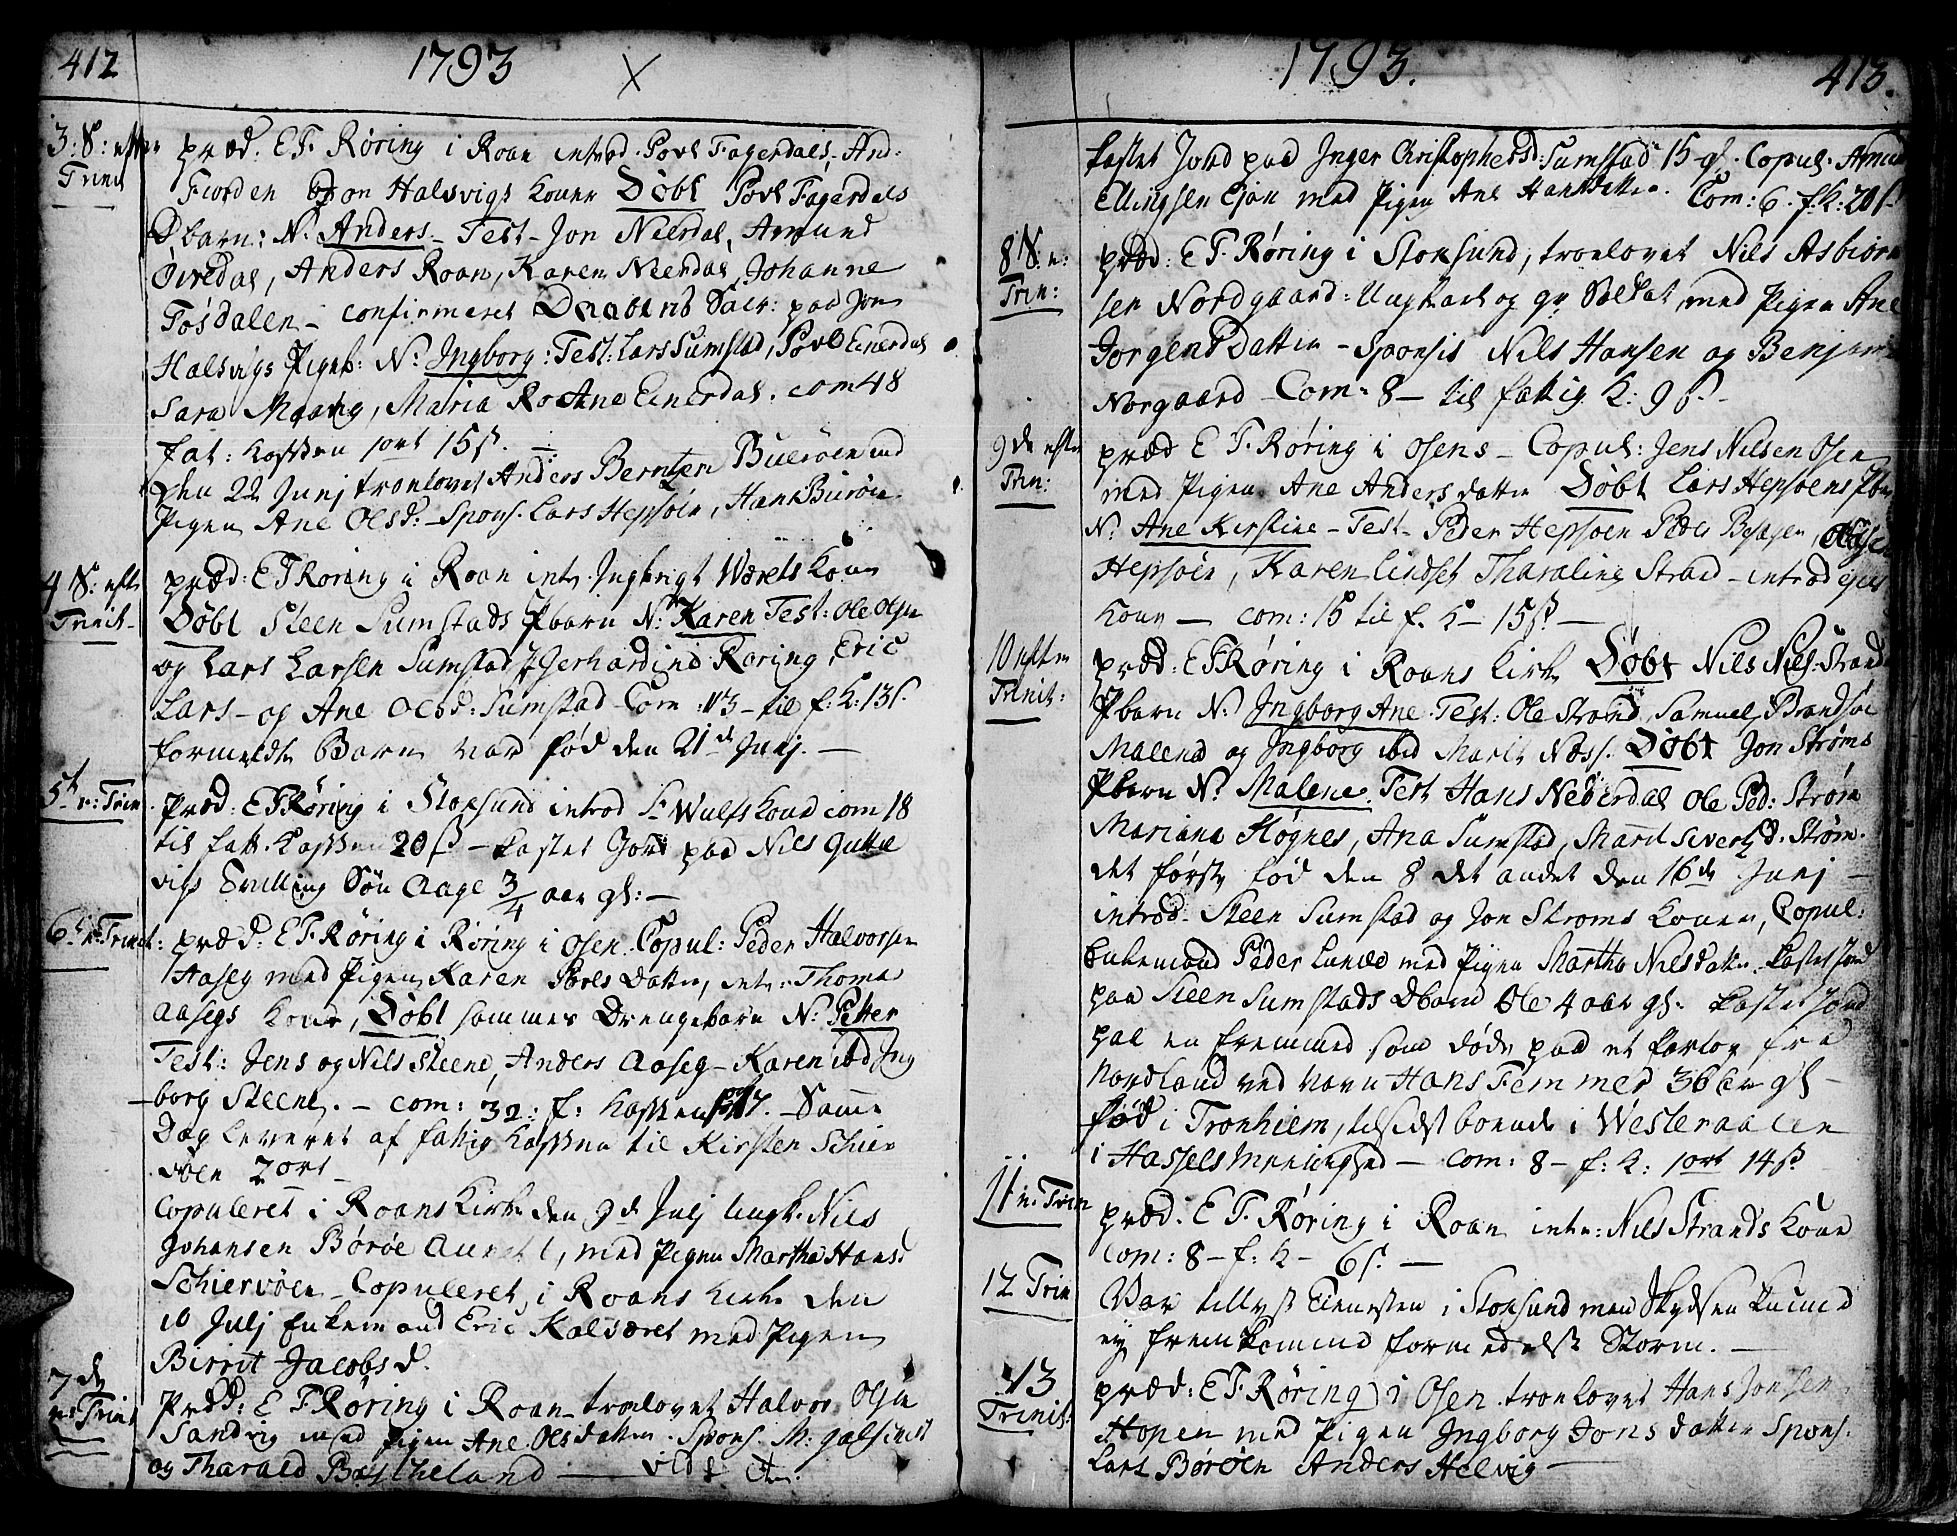 412
1793
3: S: efter
Trinit
præd: E F. Røring i Roan introd. Povl Fagerdals, And.
Fiorden og on Halsvigs Koner Døbt Povl Fagerdals
Dbarn: N. Anders - Test - Jon Neerdal, Amund
Øiredal, Anders Roan, Karen Neerdal, Johanne
Fosdalen - confirmeret Daabens Sacr: paa Jon
Halsvigs Pigeb: N. Ingborg: Test: Lars Sumstad, Povl Einerdal
Sara Maarig, Maria Ro Ane Einerdal. com 48
fat: Kassen 1 ort 15 s.
Den 22 Junj trolovet Anders Berntzen Buerøen med
Pigen Ane Olsd: - Spons. Lars Hepsøen, Hans Buerøen
4 S: efter
Trinit -
præd: E F Røring i Roan intr. Ingbrigt Wærets Kone
Døbt Steen Sumstads Pbarn N: Karen Test: Ole Olsen
og Lars Larsen Sumstad J Gerhardine Røring, Eric
Lars - og Ane Olsd: Sumstad Com: 113 - til f: K: 13 s.
formeldte Barn var fød den 21 de Junj. -
5te e: Trin.
Præd: E F Røring i Stoksund introd Sr Wulfs Kone com 18
til fatt. Kassen 20 s - kastet Jord paa Nils Gutte
vigs Tvilling Søn Aage 3/4 aar gl: -
6te e: Trinit:
præd: E F. Røring i Røring i Osen. Copul: Peder Halvorsen
Haseg med Pigen Karen Povels Datter, intr: Thomes
Aasegs Kone, Døbt sammes Drengebarn N: Petter
Test: Jens og Nils Steene, Anders Aaseg - Karen ibd Ing
borg Steene. - com: 32: f: Kassen 17. - Samme
Dag leveret af fattig Kassen til Kirsten Schier
vøen 2 ort -
Copuleret i Roans Kirke den 9 de Julj Ungk. Nils
Johansen Børøe, med Pigen Martha Hansd
Schiervøen - Copuleret i Roans Kirke den
10 Julj Enkemand Eric Kalværet med Pigen
Birrit Jacobsd.
7 de
e: Trinit
Præd: E F. Røring i Roan - trolovet Halvor Olsen
Sandvig med Pigen Ane Olsdatter. Spons. M: galsines
og Tharald Bestheland -
1793.
413.
kastet Jord paa Inger Christophersd: Sumstad 15 gl. Copul. Amund
Ellingsen Eján med Pigen Ane Hansdatter. Com: 6. f: K: 20 s
8 S. e:
Trin:
præd: E F. Røring i Stoksund, trolovet Nils Asbiørn
sen Nordgaard: Ungkarl og gv Soldat, med Pigen Ane
Jørgens Datter - Sponsis Nils Hansen og Benjamin
Norgaard - Com: 8 - til fattig K: 9 s. -
9 de efter
Trin:
præd E F. Røring i Osens - Copul: Jens Nilsen Osen
med Pigen Ane Andersdatter Døbt Lars Hepsøens Pbarn
N. Ane Kirstine - Test - Peder Hepsøen Peder Besager,
Hepsøen, Karen Lindset Tharaline Strand - introd ejus
Kone - com: 15 til f. K - 15 s -
10 efter
Trinit:
præd: E F Røring i Roans Kirke Døbt Nils Nils. Strand
Pbarn N. Ingborg Ane. Test: Ole Strand, Samuel Brandsøe
Malene og Ingborg ibid Marit Næss. Døbt Jon Strøms
Pbarn N. Malene. Test Hans Nederdal Ole Ped: Strøm
Mariane Høgnes, Ane Sumstad, Marit Sivertsd. Strøm.
det første fød den 8 det andet den 16 de Junj -
introd. Steen Sumstad og Jon Strøms Koner, Copul:
Enkemand Peder Lunde med Pigen Martha Nilsdatter. kastet Jord
paa Steen Sumstads Dbarn Ole 4 aar gl. kastet Jord
paa en fremmed som døde paa et fartøy fra
Nordland ved navn Hans Femmer 36 aar gl -
fød i Tronhiem, tilsidst boende i Westeraalen
i Hassels Menighed - com: 8 - f: K: 1 ort 14 s
11 e. Trin
præd. E F. Røring i Roan intr: Nils Strands Kone
com: 8 - f: K - 6 s. -
12 Trin
Var tillyst Tienesten i Stoksund men Skydsen kunne
ej fremkomme formedelst Storm. -
13
Trinit:
præd: E F. Røring i Osen. trolovet Hans Jonsen
Hopen med Pigen Ingborg Jonsdatter Spons.
Lars Børøen Anders Helvig -